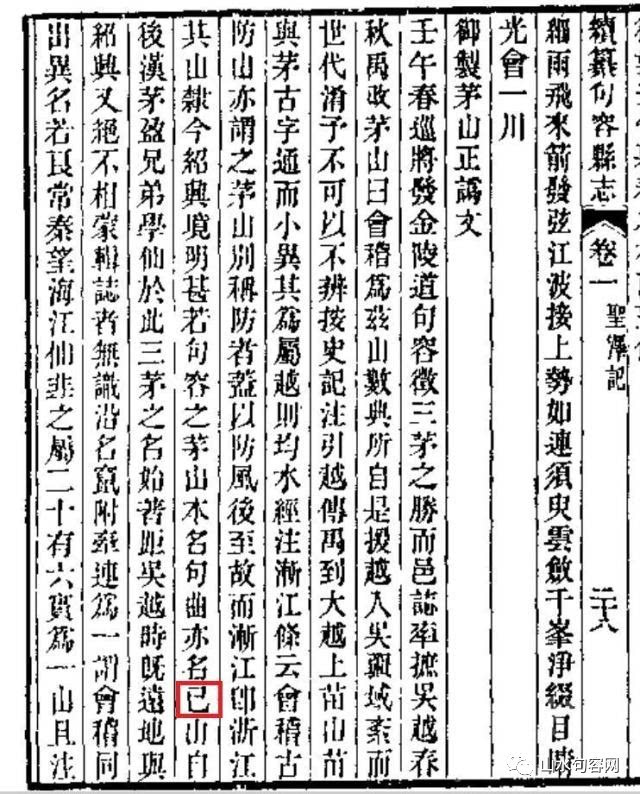 續纂句容縣志 卷一 聖澤記 二十八
細雨飛來箭發弦江波接上勢如連須臾雲斂千峯淨綴目
光會一川
御製茅山正譌文
壬午春巡將發金陵道句容徵三茅之勝而邑誌率摭吳越春
秋禹改茅山曰會稽爲茲山數典所自是援越入吳疆域紊而
世代淆予不可以不辨按史記注引越傳禹到大越上苗山苗
與茅古字通而小異其爲屬越則均水經注漸江條云會稽古
防山亦謂之茅山別稱防者蓋以防風後至故而漸江卽浙江
其山隸今紹興境明甚若句容之茅山本名句曲亦名已山自
後漢茅盈兄弟學仙於此三茅之名始著距吳越時既遠地與
紹興又絕不相蒙輯誌者無識沿名竄附牽連爲一謂會稽同
出異名若良常秦望海江仙韭之屬二十有六實爲一山且注
山水句容网